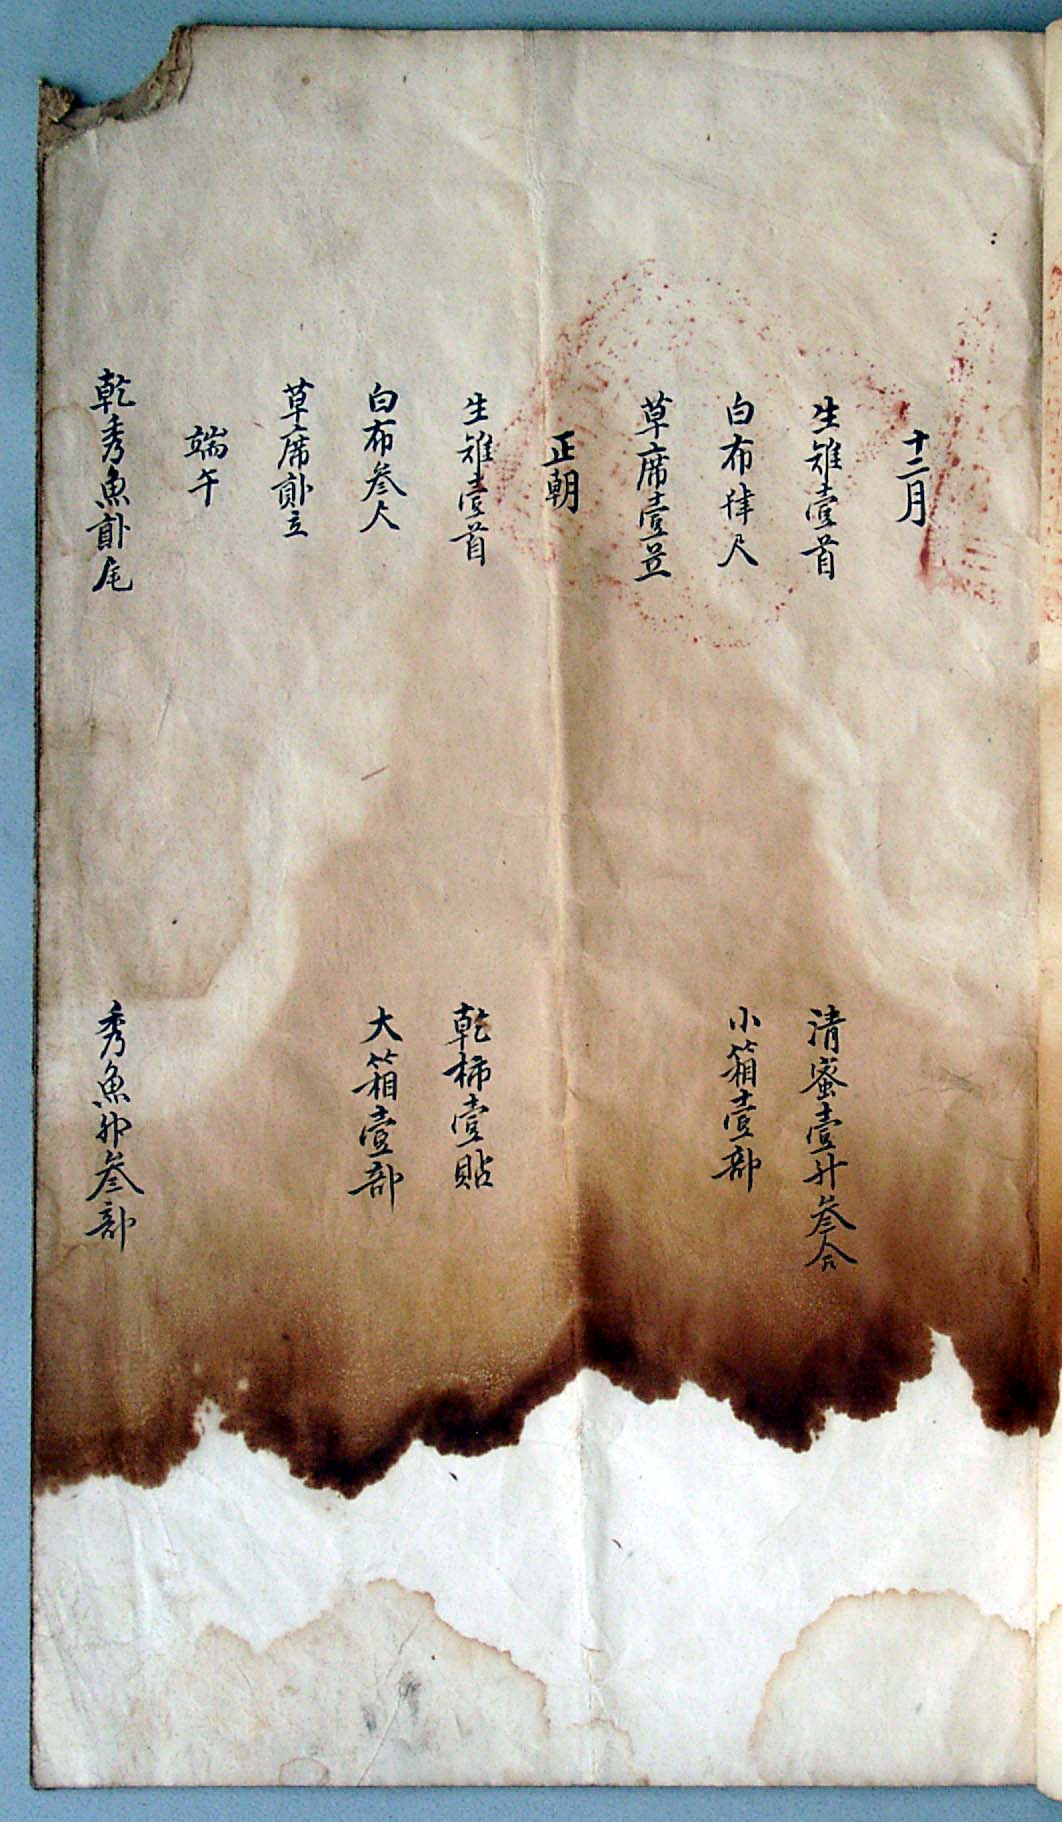 十二月
生雉壹首 清蜜壹升叄合
白布肆尺 小箱壹部
草席壹立
正朝
生雉壹首 乾柿壹貼
白布叄尺 大箱壹部
草席貳立
端午
乾秀魚貳尾 秀魚卵叄部